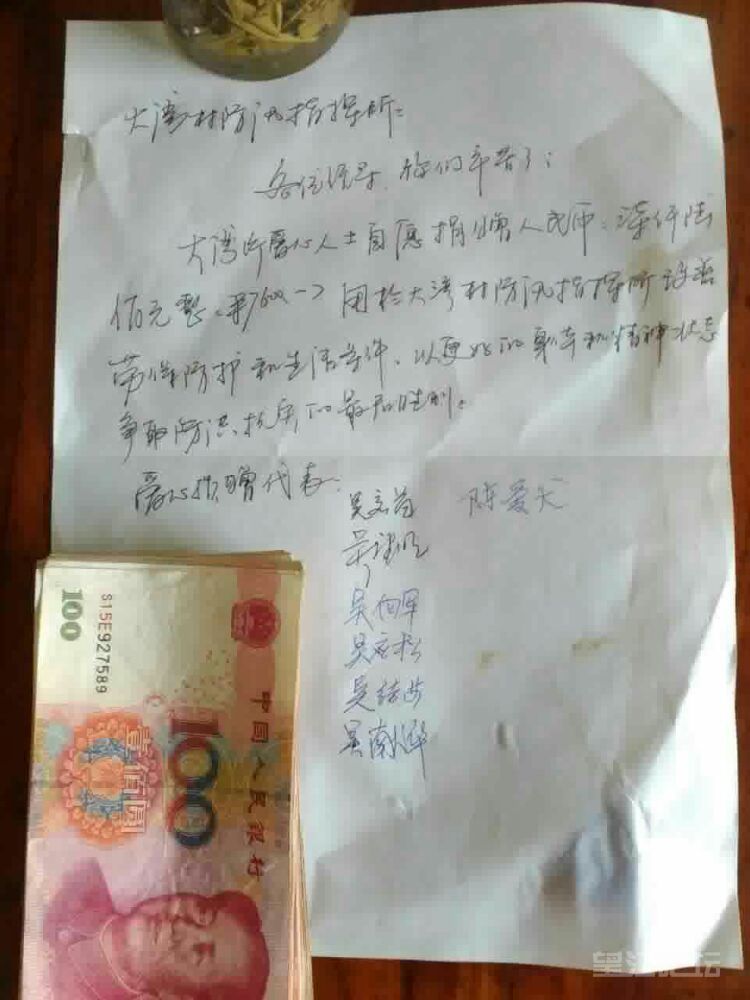 大湾村防汛指挥所:
各位领导、你们辛苦了:
大湾所爱心人士自愿捐赠人民币、柒仟陆
佰元整、用於大湾村防汛指挥所改善
劳保防护和生活条件、以更好的身体和精神状态
争取防汛抗灾的最后胜利。
爱心捐赠代表:
陈爱
吴
吴向军
吴应松
吴结
吴南
100
S15E927589
中国人民银行
100
壹佰圆
望江论坛